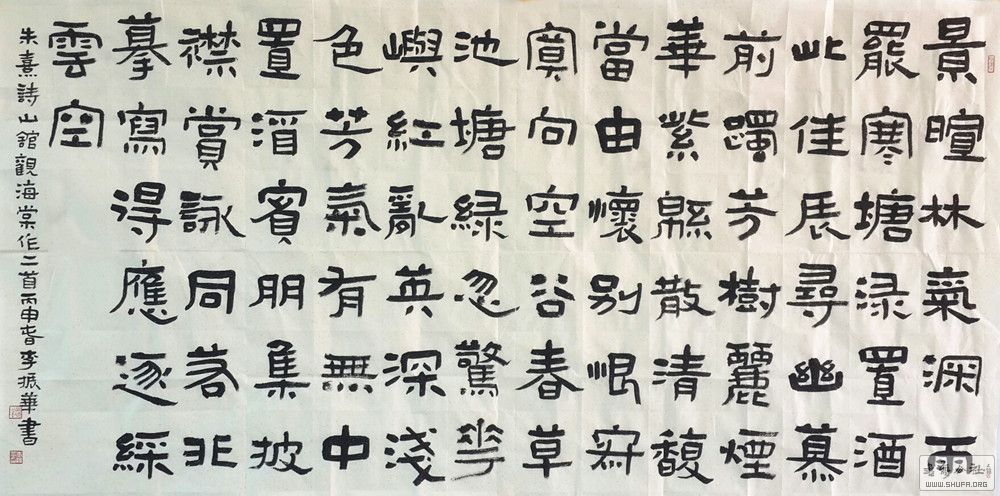 景暄林氣深雨
罷寒塘渌置酒
此佳辰尋幽慕
前躅芳樹麗煙
華紫緜散清馥
當由懷別恨寂
寞向空谷春草
池塘綠忽驚花
嶼紅亂英深淺
色芳氣有無中
置湑賓朋集披
襟賞詠同若非
摹寫得應逐綵
雲空
朱熹詩山館觀海棠作二首丙申春李振華書
WWW.SHUFA.ORG